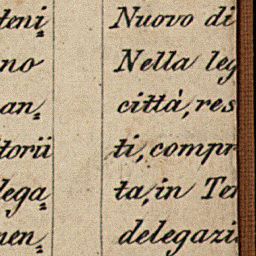 teni= Nuovo di
no Nella leg
an= città, res
torii ti, compr
lega= ta, in Ter
nen= delegazi